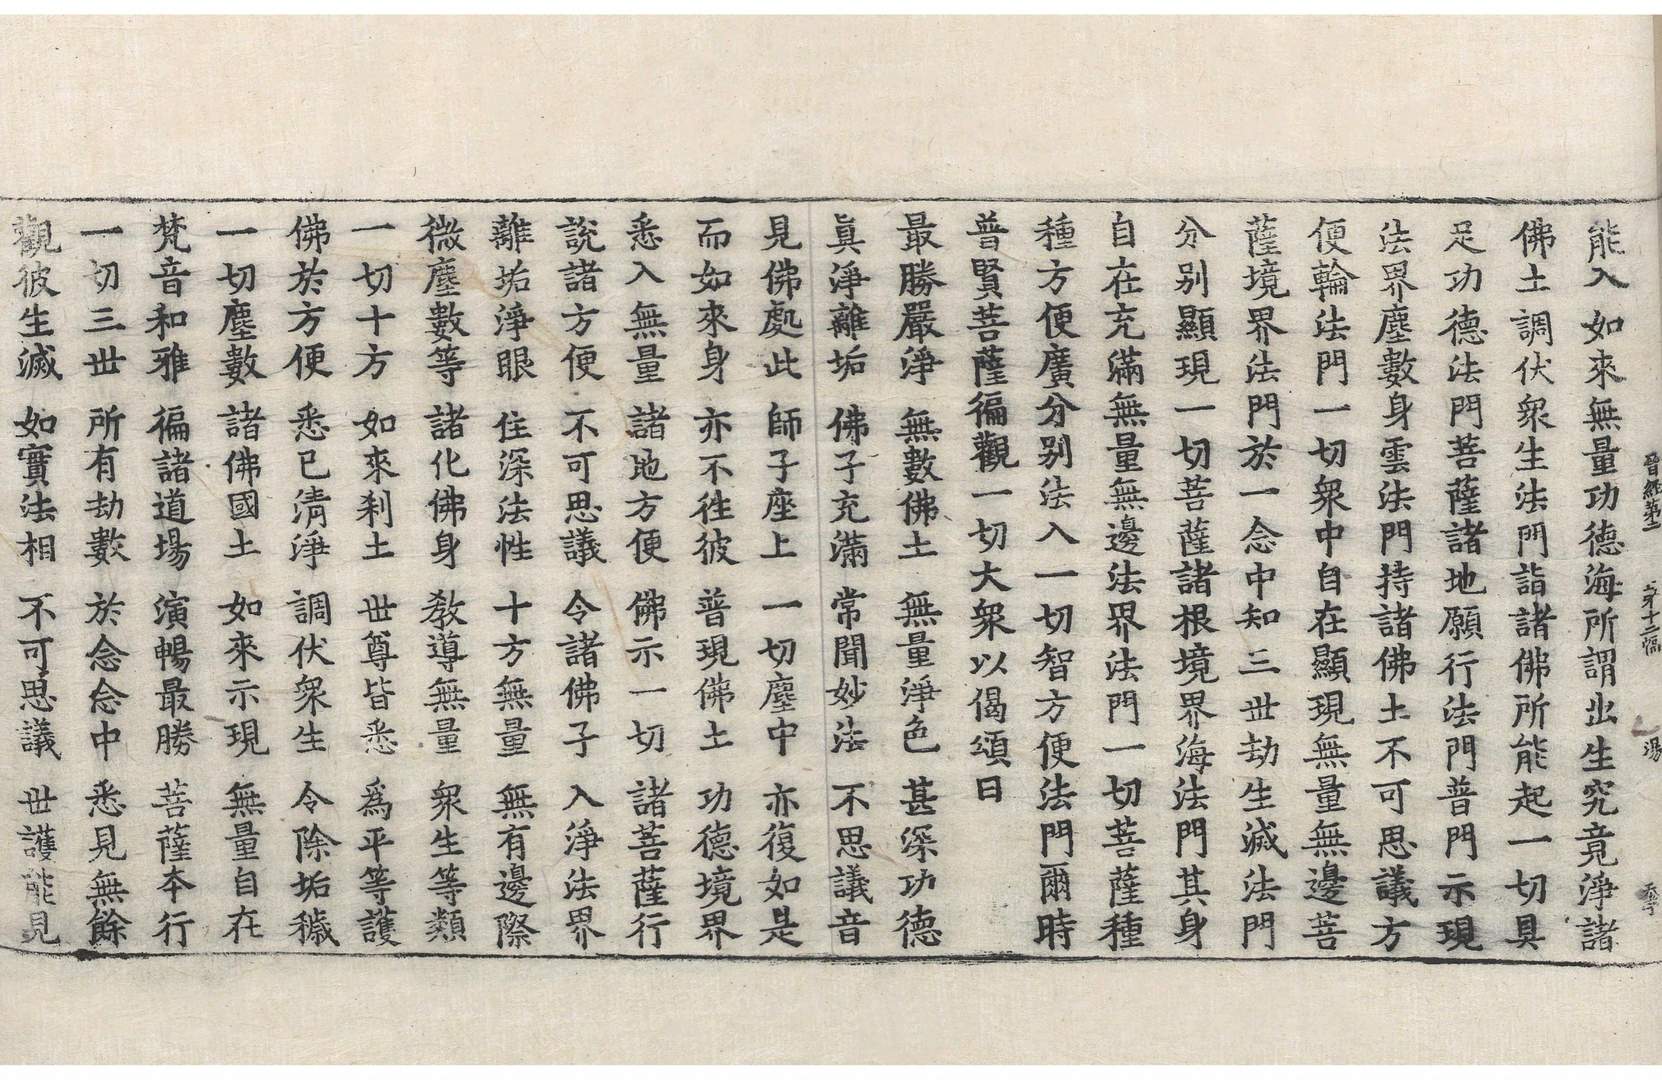 晉經第二　第十二幅　湯
能入如來無量功德海所謂出生究竟淨諸
佛土調伏衆生法門詣諸佛所能起一切具
足功德法門菩薩諸地願行法門普門示現
法界塵數身雲法門持諸佛土不可思議方
便輪法門一切衆中自在顯現無量無邊菩
薩境界法門於一念中知三世劫生滅法門
分別顯現一切菩薩諸根境界海法門其身
自在充滿無量無邊法界法門一切菩薩種
種方便廣分別法入一切智方便法門爾時
普賢菩薩徧觀一切大衆以偈頌曰
最勝嚴淨　無數佛土　無量淨色　甚深功德
眞淨離垢　佛子充滿　常聞妙法　不思議音
見佛處此　師子座上　一切塵中　亦復如是
而如來身　亦不徃彼　普現佛土　功德境界
悉入無量　諸地方便　佛示一切　諸菩薩行
說諸方便　不可思議　令諸佛子　入淨法界
離垢淨眼　住深法性　十方無量　無有邊際
微塵數等　諸化佛身　敎導無量　衆生等類
一切十方　如來刹土　世尊皆悉　爲平等護
佛於方便　悉已淸淨　調伏衆生　令除垢穢
一切塵數　諸佛國土　如來示現　無量自在
梵音和雅　徧諸道場　演暢最勝　菩薩本行
一切三世　所有劫數　於念念中　悉見無餘
觀彼生滅　如實法相　不可思議　世護能見